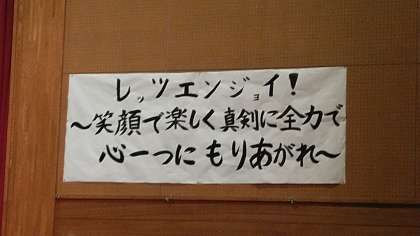 レッツエンジョイ!
～笑顔で楽しく真剣に全力で
心一つにもりあがれ～